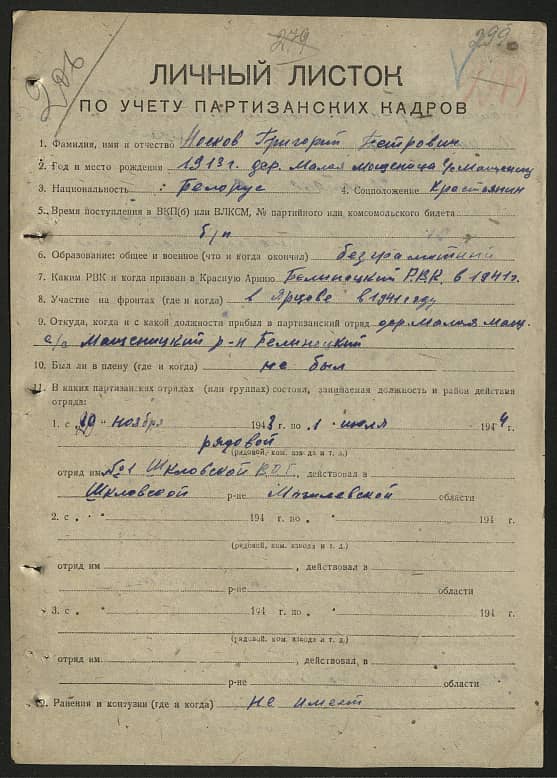 279
299
206
ЛИЧНЫЙ ЛИСТОК
ПО УЧЕТУ ПАРТИЗАНСКИХ КАДРОВ
1. Фамилия, имя и отчество Носков Григорий Петрович
2. Год и место рождения 1913 г. дер. Малая Мощеница
3. Национальность : Белорус 4. Соцположение Крастянин
5. Время поступления в ВКП(б) или ВЛКСМ, № партийного или комсомольского билета
б/п
6. Образование: общее и военное (что и когда окончил) безграмотный
7. Каким РВК и когда призван в Красную Армию Белиноцкий РВК в 1941 г.
8. Участие на фронтах (где и когда) в Ярцове в 1941 году
9. Откуда, когда и с какой должности прибыл в партизанский отряд дер. Малая Мощ.
с/с Мощеницкий р-н Белиноцкий
10. Был ли в плену (где и когда) не был
11. В каких партизанских отрядах (или группах) состоял, занимаемая должность и район действия
отряда:
1. с 20 " ноября 1943 г по 1 " июля 1944 г.
рядовой
(рядовой, ком. взвода и т. д.)
отряд им №1 Шкловской В.О.Г., действовал в
Шкловской р-не Могилевской области
2. с " " 194 г. по " 194 г.
(рядовой, ком. взвода и т. д.)
отряд им , действовал в
р-не области
3. с " " 194 г по " 194 г.
(рядовой, ком. взвода и т. д.)
отряд им. , действовал, в
р-не области
Ранения и контузии (где и когда) не имеет